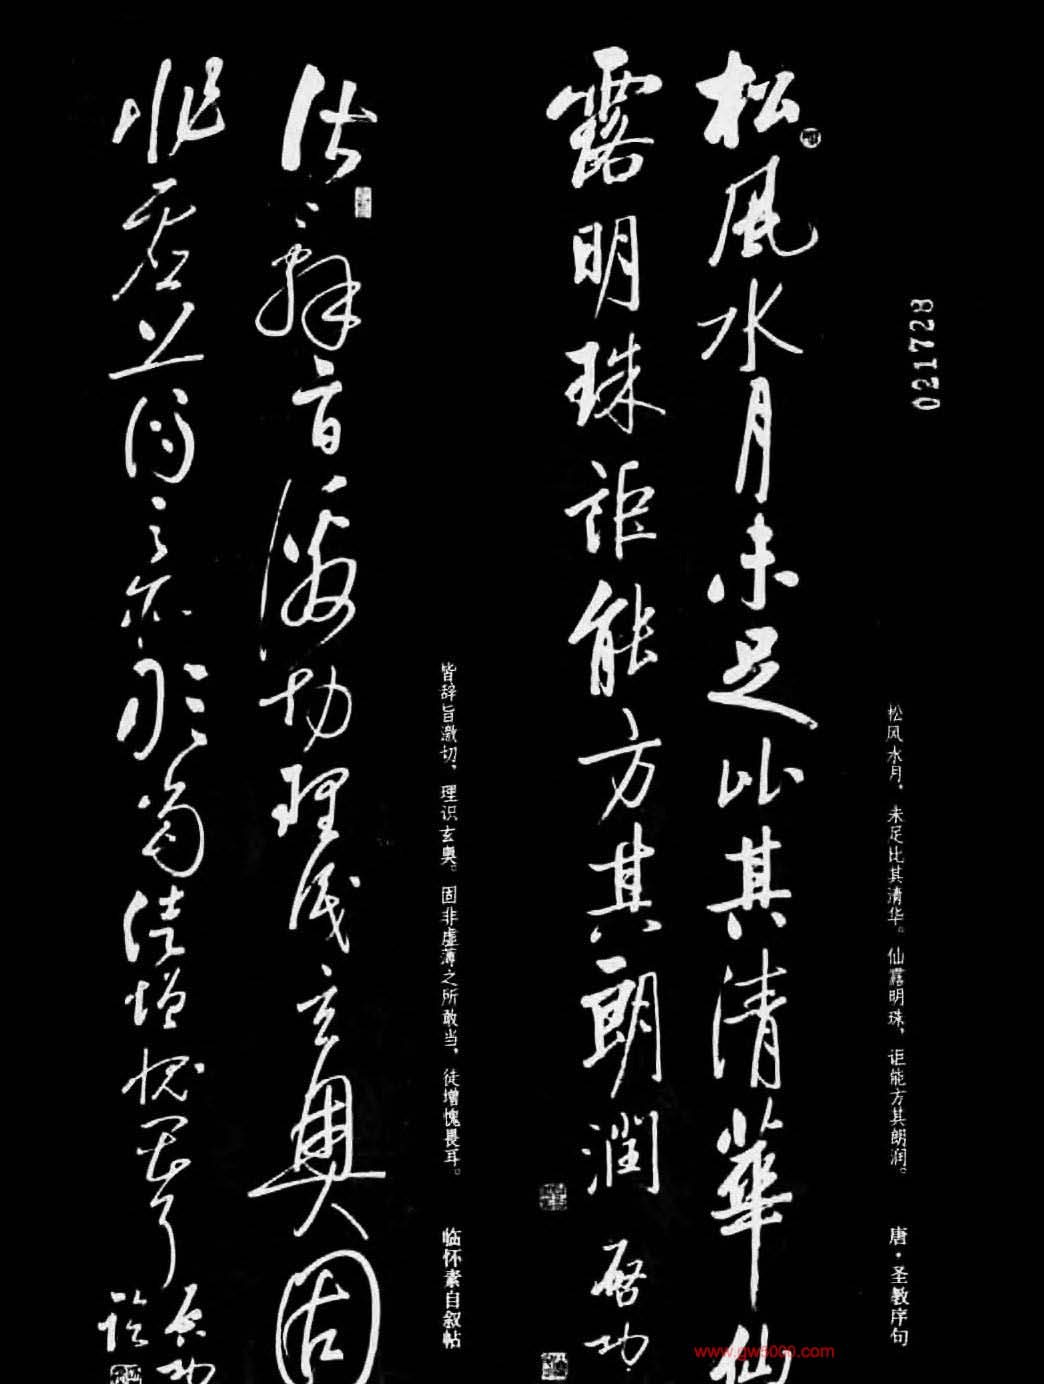 021728
松风水月，未足比其清华。仙露明珠，讵能方其朗润。
唐·圣教序句
松風水月未足比其清華仙
露明珠詎能方其朗潤
啓功
皆辞旨激切，理识玄奥。固非虚薄之所敢当，徒增愧畏耳。
临怀素自叙帖
皆辭旨激切理識玄奧固
非虚薄之所敢當徒增愧畏耳
啓功
臨
www.gw5000.com